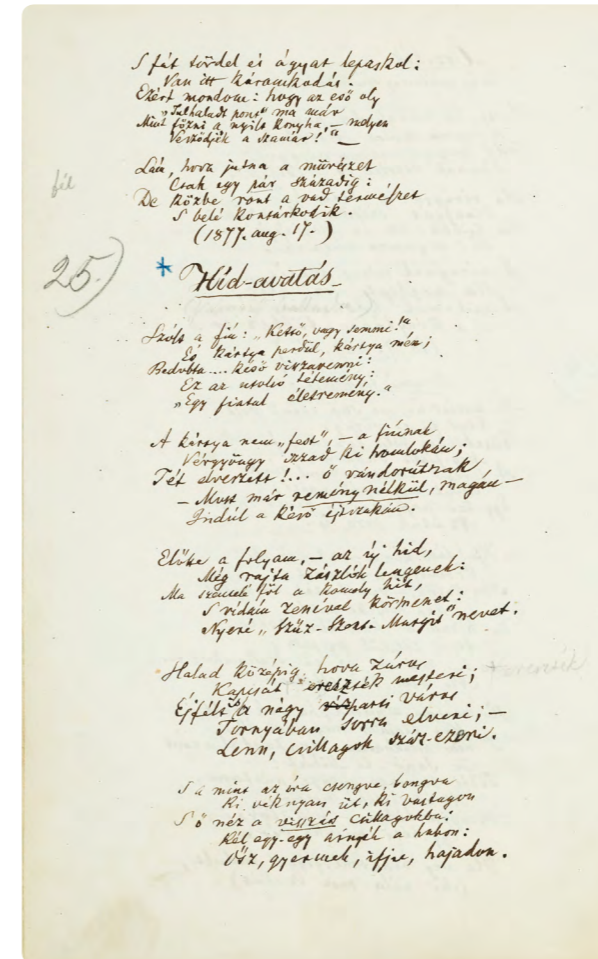 S fát tördel és ágyat lepaskol:
Van itt káromkodás.
Ezért mondom: hogy az eső oly
„Tulhaladt pont" ma már
Mint főzni a nyilt konyha, – melyen
Vesződjék a szamár!" –
Lám, hova jutna a művészet
Csak egy pár századig:
De közbe ront a vad természet
S belé kontárkodik.
(1877. aug. 17.)
fél
25.)
* Híd-avatás
Szólt a fiu: „Kettő, vagy semmi!"
És kártya perdűl, kártya mén;
Bedobta.... késő viszavenni:
Ez az utolsó tétemény:
„Egy fiatal életremény."
A kártya nem „fest", – a fiúnak
Vérgyöngy izzad ki homlokán;
Tét elveszett!... ő vándorútnak
– Most már remény nélkül, magán –
Indúl a késő éjszakán.
Előtte a folyam, – az új híd,
Még rajta zászlók lengenek:
Ma szentelé föl a komoly hit,
S vidám zenével körmenet:
Nyeré „Szűz-Szent-Margit" nevet.
Halad középig, hova záros
Kapcsát ereszték mesteri;
Éjfélt is a négy parti város
Tornyában sorra elveri; –
Lenn, csillagok száz-ezeri.
S a mint az óra csengve, bongva
Ki véknyan üt, ki vastagon
S ő néz a visszás csillagokba:
Kél egy-egy árnyék a habon:
Ősz, gyermek, ifju, hajadon.